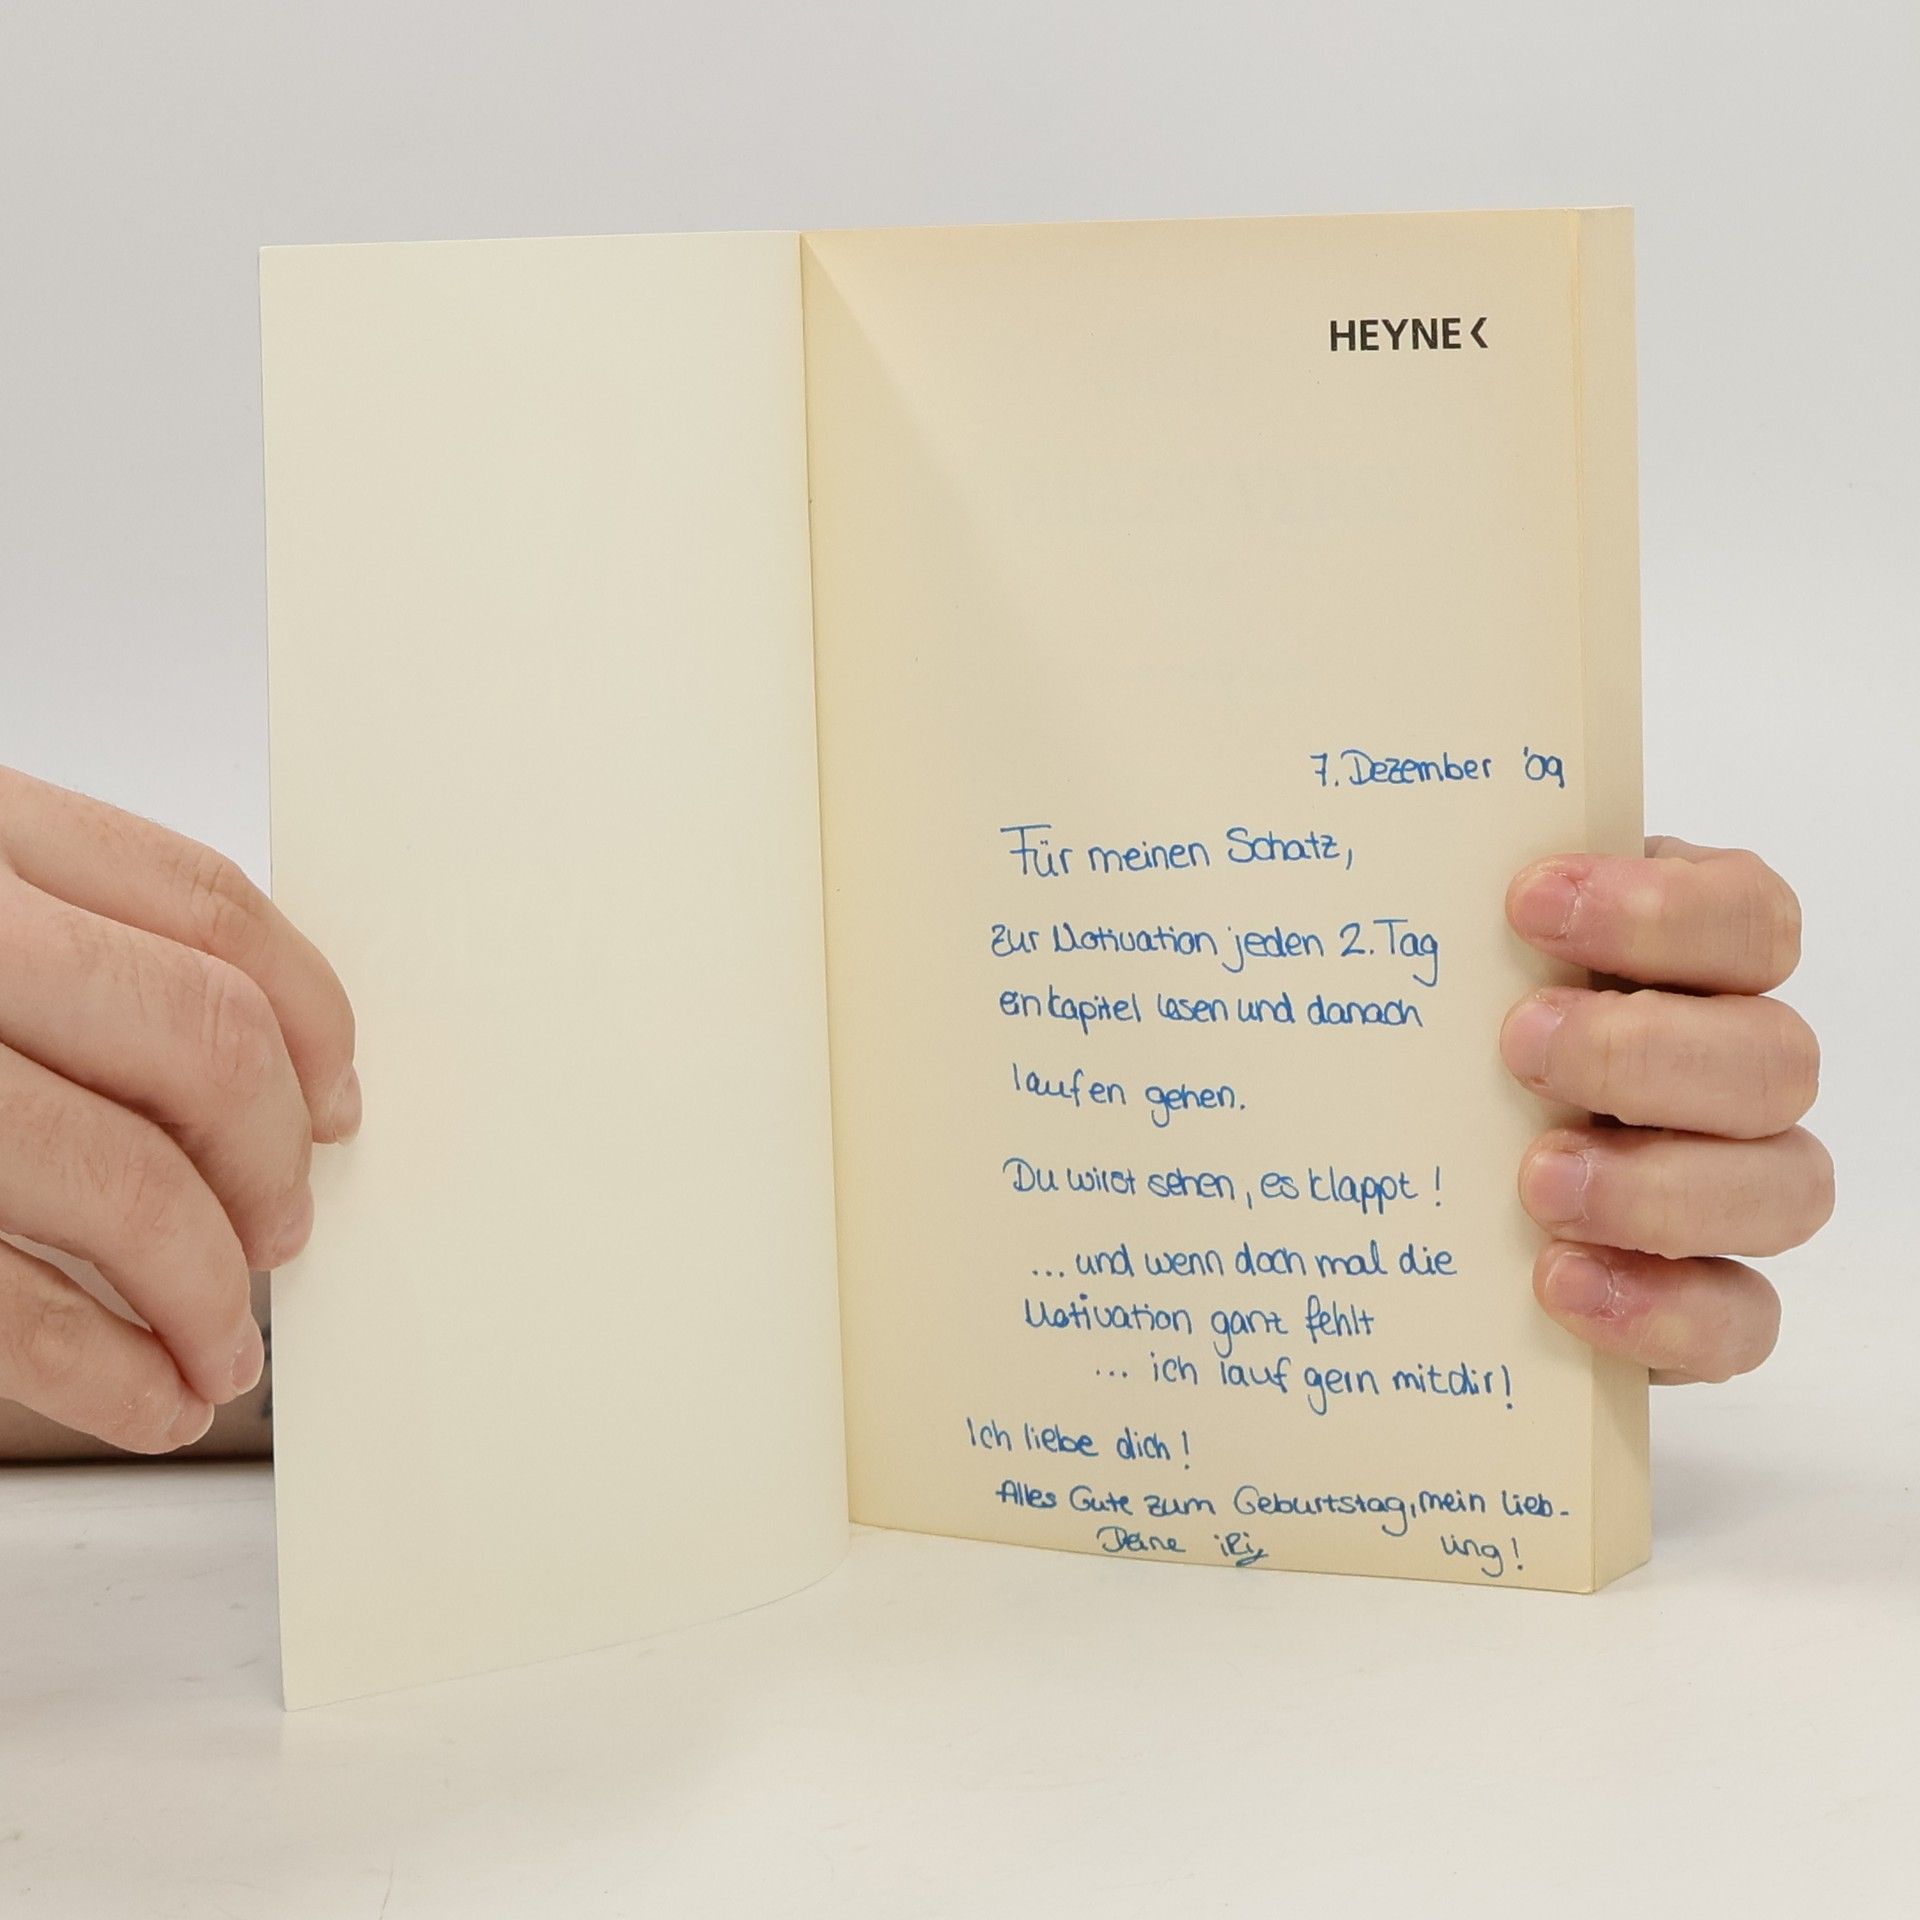 HEYNE<
7. Dezember '09
Für meinen Schatz,
zur Motivation jeden 2. Tag
ein Kapitel lesen und danach
laufen gehen.
Du wirst sehen, es klappt!
... und wenn doch mal die
Motivation ganz fehlt
... ich lauf gern mit dir!
Ich liebe dich!
Alles Gute zum Geburtstag, mein Lieb-
Deine ling!